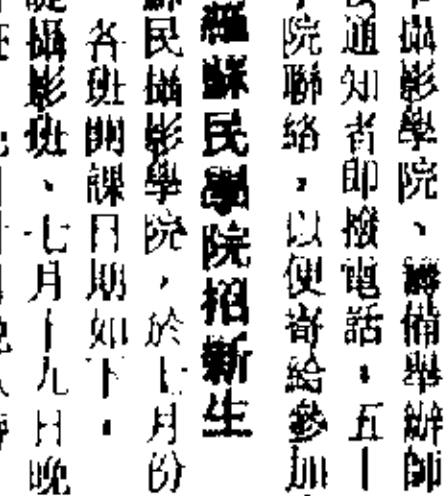 攝影學院、籌備舉辦師
通知者即撥電話：五｜
院聯絡，以便寄給參加
羅蘇民學院招新生
蘇民攝影學院，於七月份
各班開課日期如下：
攝影班、七月十九日晚